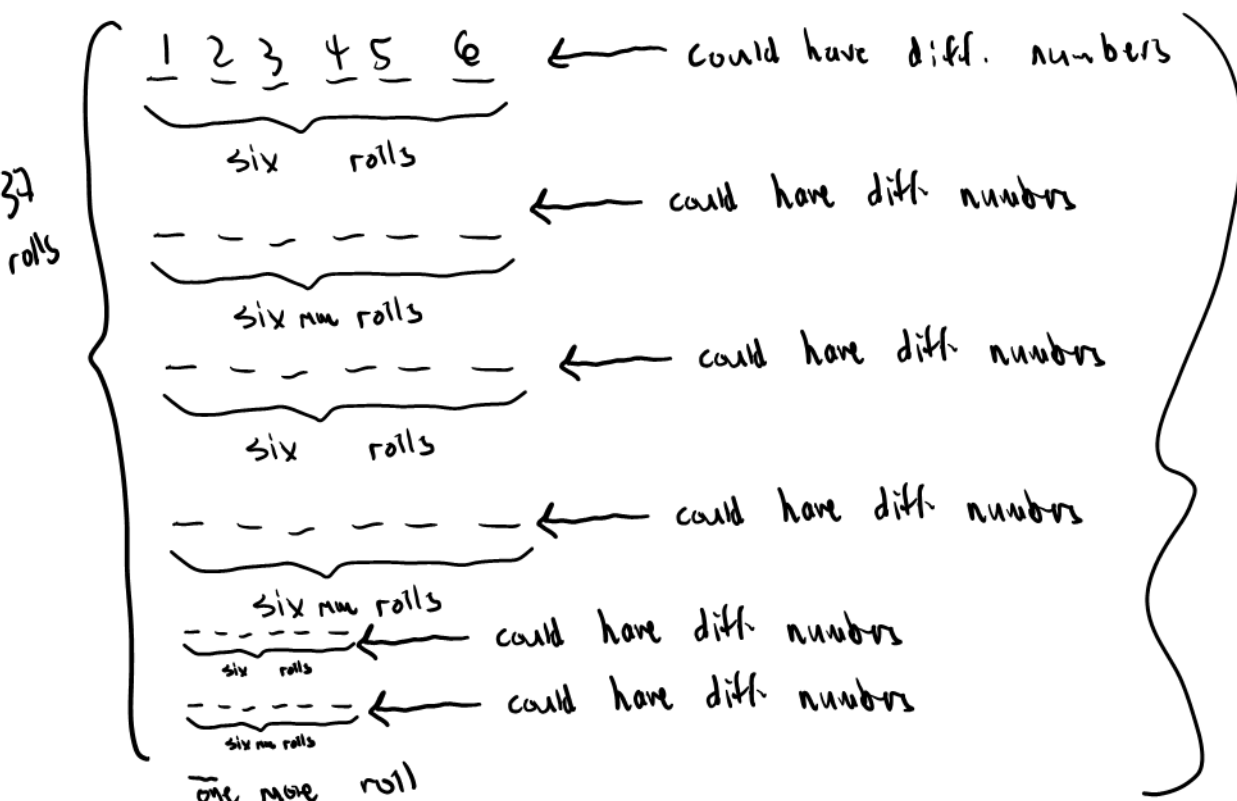 1 2 3 4 5 6 ← could have diff. numbers
six rolls
37
rolls
← could have diff. numbers
six rolls
← could have diff. numbers
six rolls
← could have diff. numbers
six rolls
← could have diff. numbers
six rolls
← could have diff. numbers
six rolls
one more roll